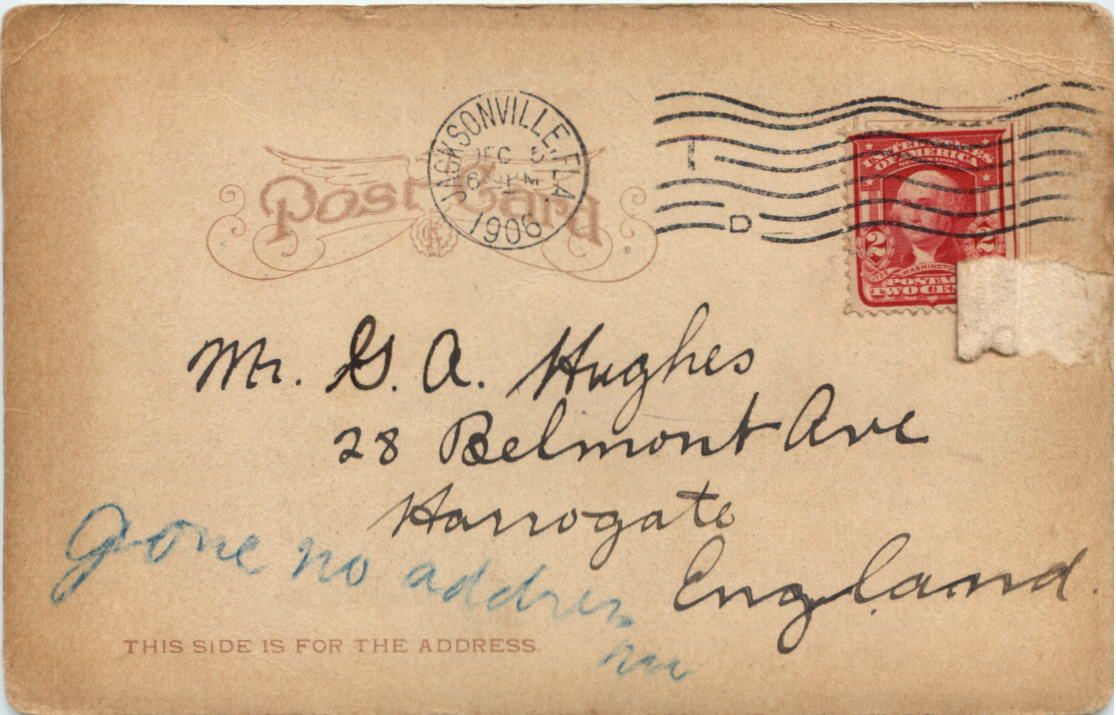 JACKSONVILLE, FLA.
DEC 5
6 PM
1906
D
Post Card
UNITED STATES
OF AMERICA
SERIES 1902
2 2
WASHINGTON
POSTAG
TWO CEN
Mr. G. A. Hughes
28 Belmont Ave
Harrogate
England.
Gone no address
THIS SIDE IS FOR THE ADDRESS.